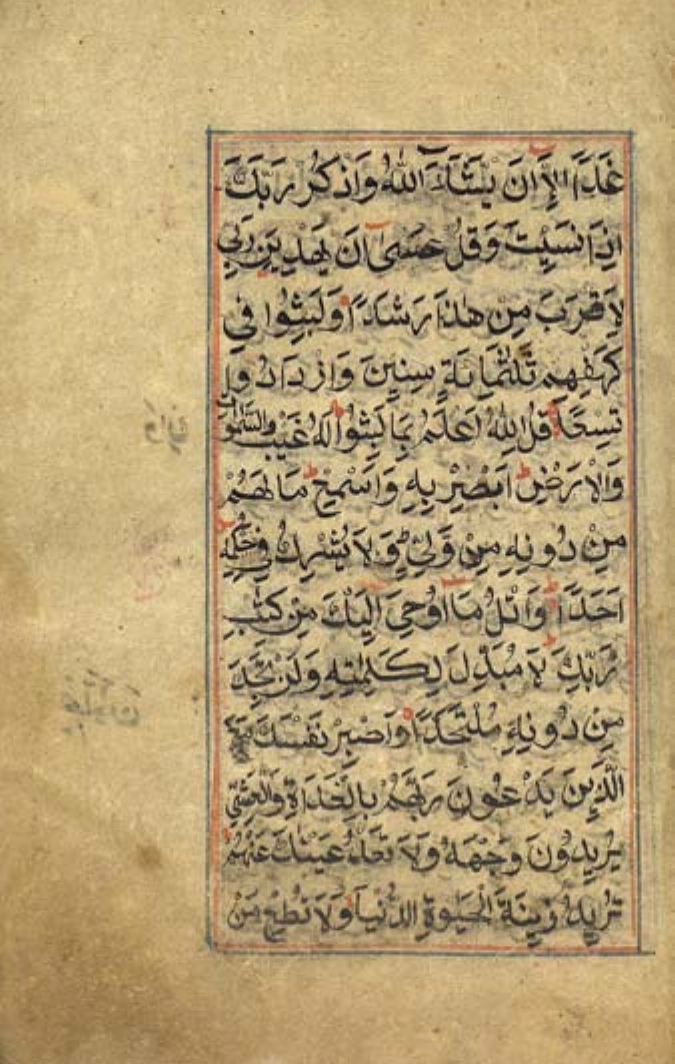 غَدًا اِلَّا اَنْ يَشَاءَ اللّٰهُ وَاذْكُرْ رَبَّكَ
اِذَا نَسِيتَ وَقُلْ عَسٰى اَنْ يَهْدِيَنِ رَبِّي
لِاَقْرَبَ مِنْ هٰذَا رَشَدًا وَلَبِثُوا فِي
كَهْفِهِمْ ثَلٰثَمِائَةٍ سِنِينَ وَازْدَادُوا
تِسْعًا قُلِ اللّٰهُ اَعْلَمُ بِمَا لَبِثُوا لَهُ غَيْبُ السَّمٰوَاتِ
وَالْاَرْضِ اَبْصِرْ بِهِ وَاَسْمِعْ مَا لَهُمْ
مِنْ دُونِهِ مِنْ وَلِيٍّ وَلَا يُشْرِكُ فِي حُكْمِهِ
اَحَدًا وَاتْلُ مَا اُوحِيَ اِلَيْكَ مِنْ كِتَابِ
رَبِّكَ لَا مُبَدِّلَ لِكَلِمٰتِهِ وَلَنْ تَجِدَ
مِنْ دُونِهِ مُلْتَحَدًا وَاصْبِرْ نَفْسَكَ مَعَ
الَّذِينَ يَدْعُونَ رَبَّهُمْ بِالْغَدَاةِ وَالْعَشِيِّ
يُرِيدُونَ وَجْهَهُ وَلَا تَعْدُ عَيْنَاكَ عَنْهُمْ
تُرِيدُ زِينَةَ الْحَيٰوةِ الدُّنْيَا وَلَا تُطِعْ مَنْ